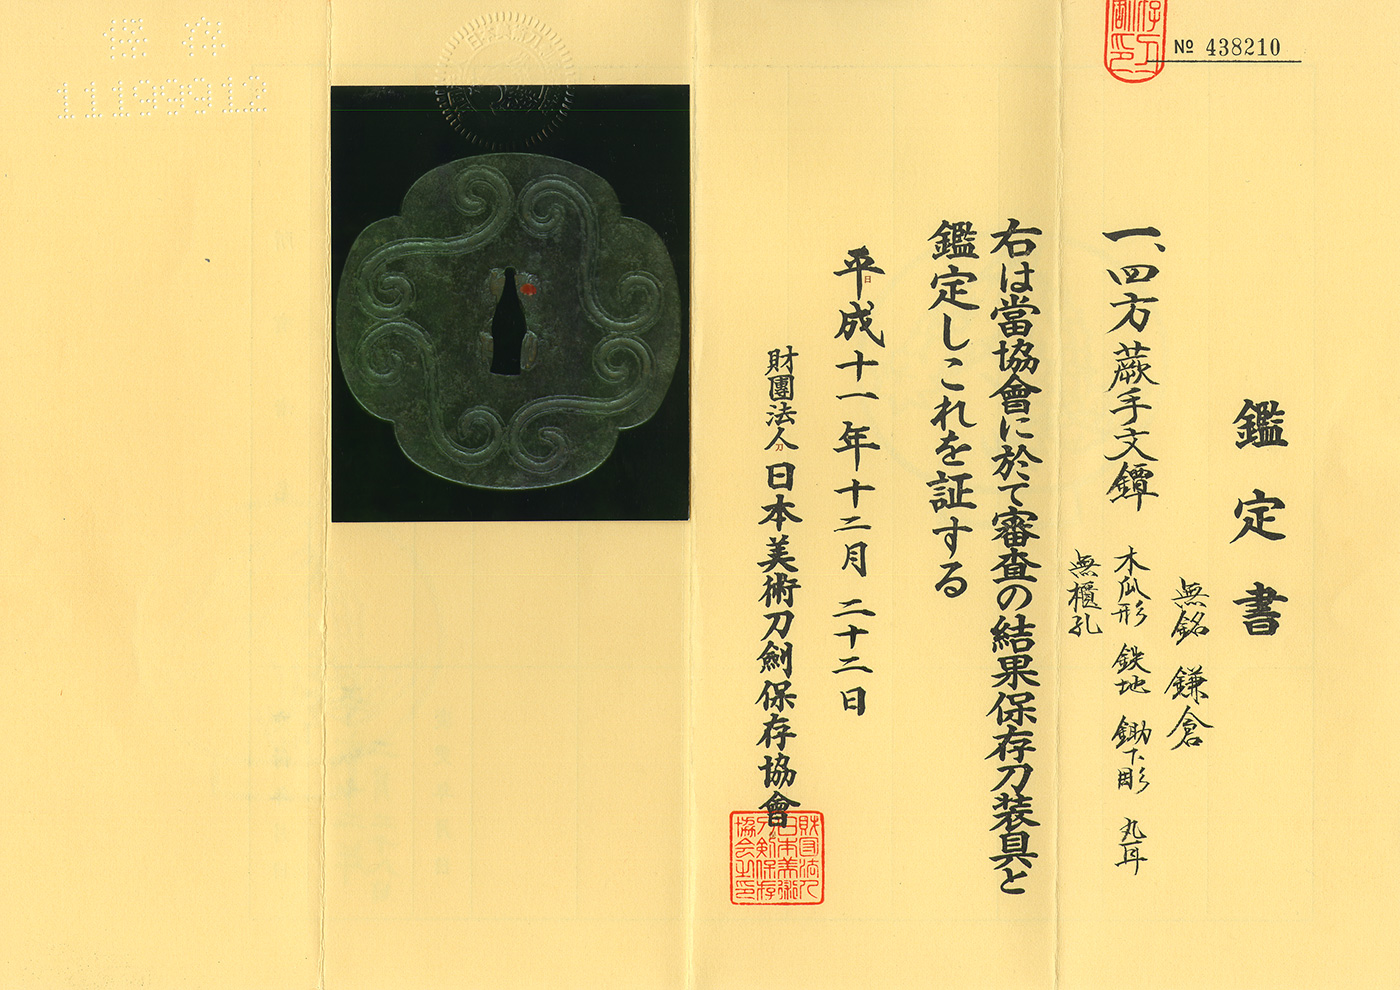 № 438210
鑑定書
一、四方蕨手文鐔
無銘 鎌倉
木瓜形 鉄地 鋤下彫 丸耳
無櫃孔
右は當協會に於て審査の結果保存刀装具と
鑑定しこれを証する
平成十一年十二月二十二日
財團法人 日本美術刀劍保存協會
財団法人
日本美術
刀剣保存
協会之印
保存
11199912